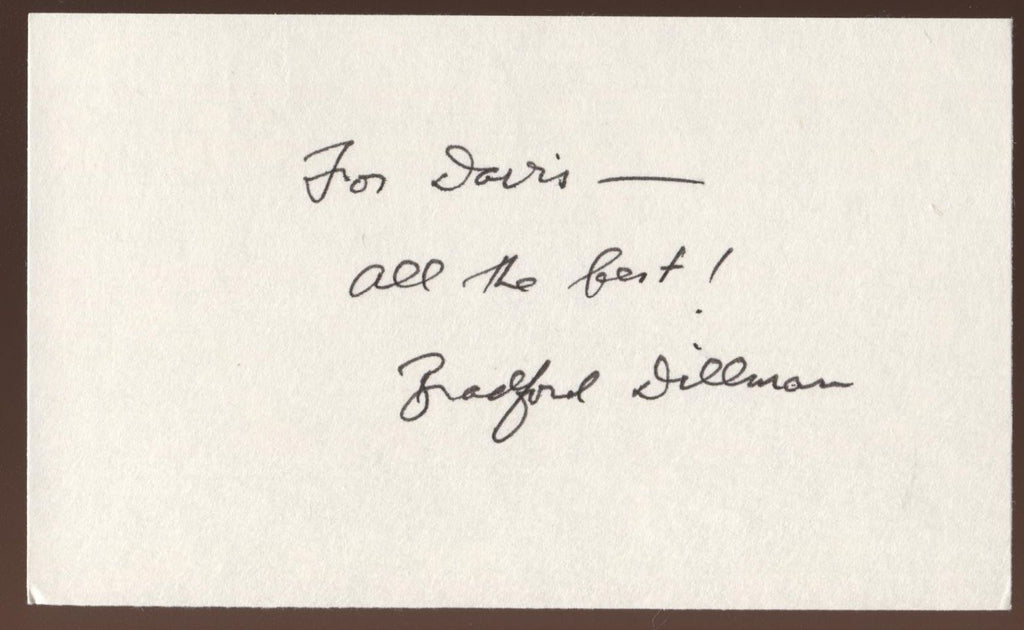 For Davis —
all the best!
Bradford Dillman